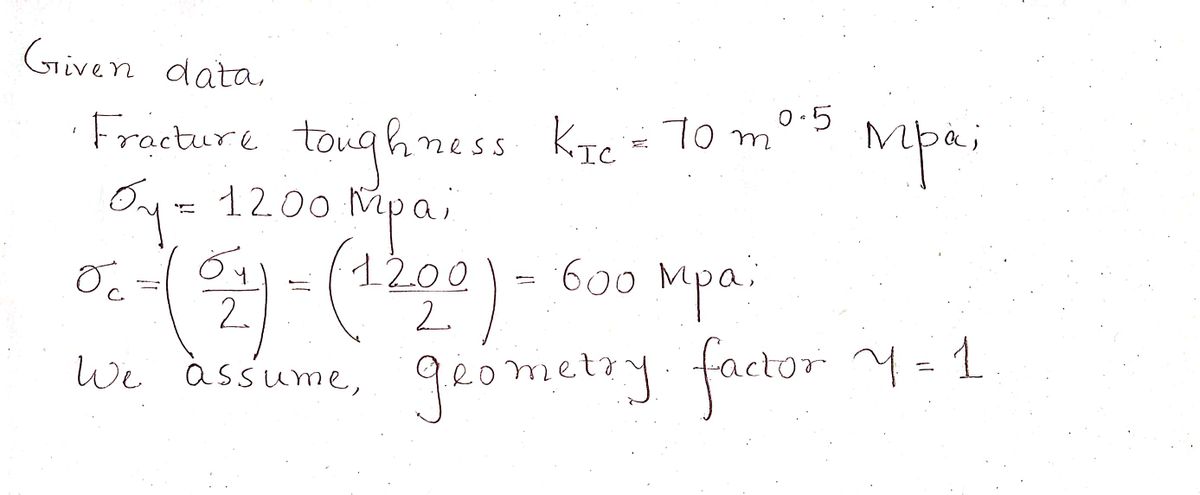 Given data,
Fracture toughness K_IC = 70 m^0.5 Mpa;
σ_y = 1200 Mpa;
σ_c = (σ_y/2) = (1200/2) = 600 Mpa;
We assume, geometry factor Y = 1